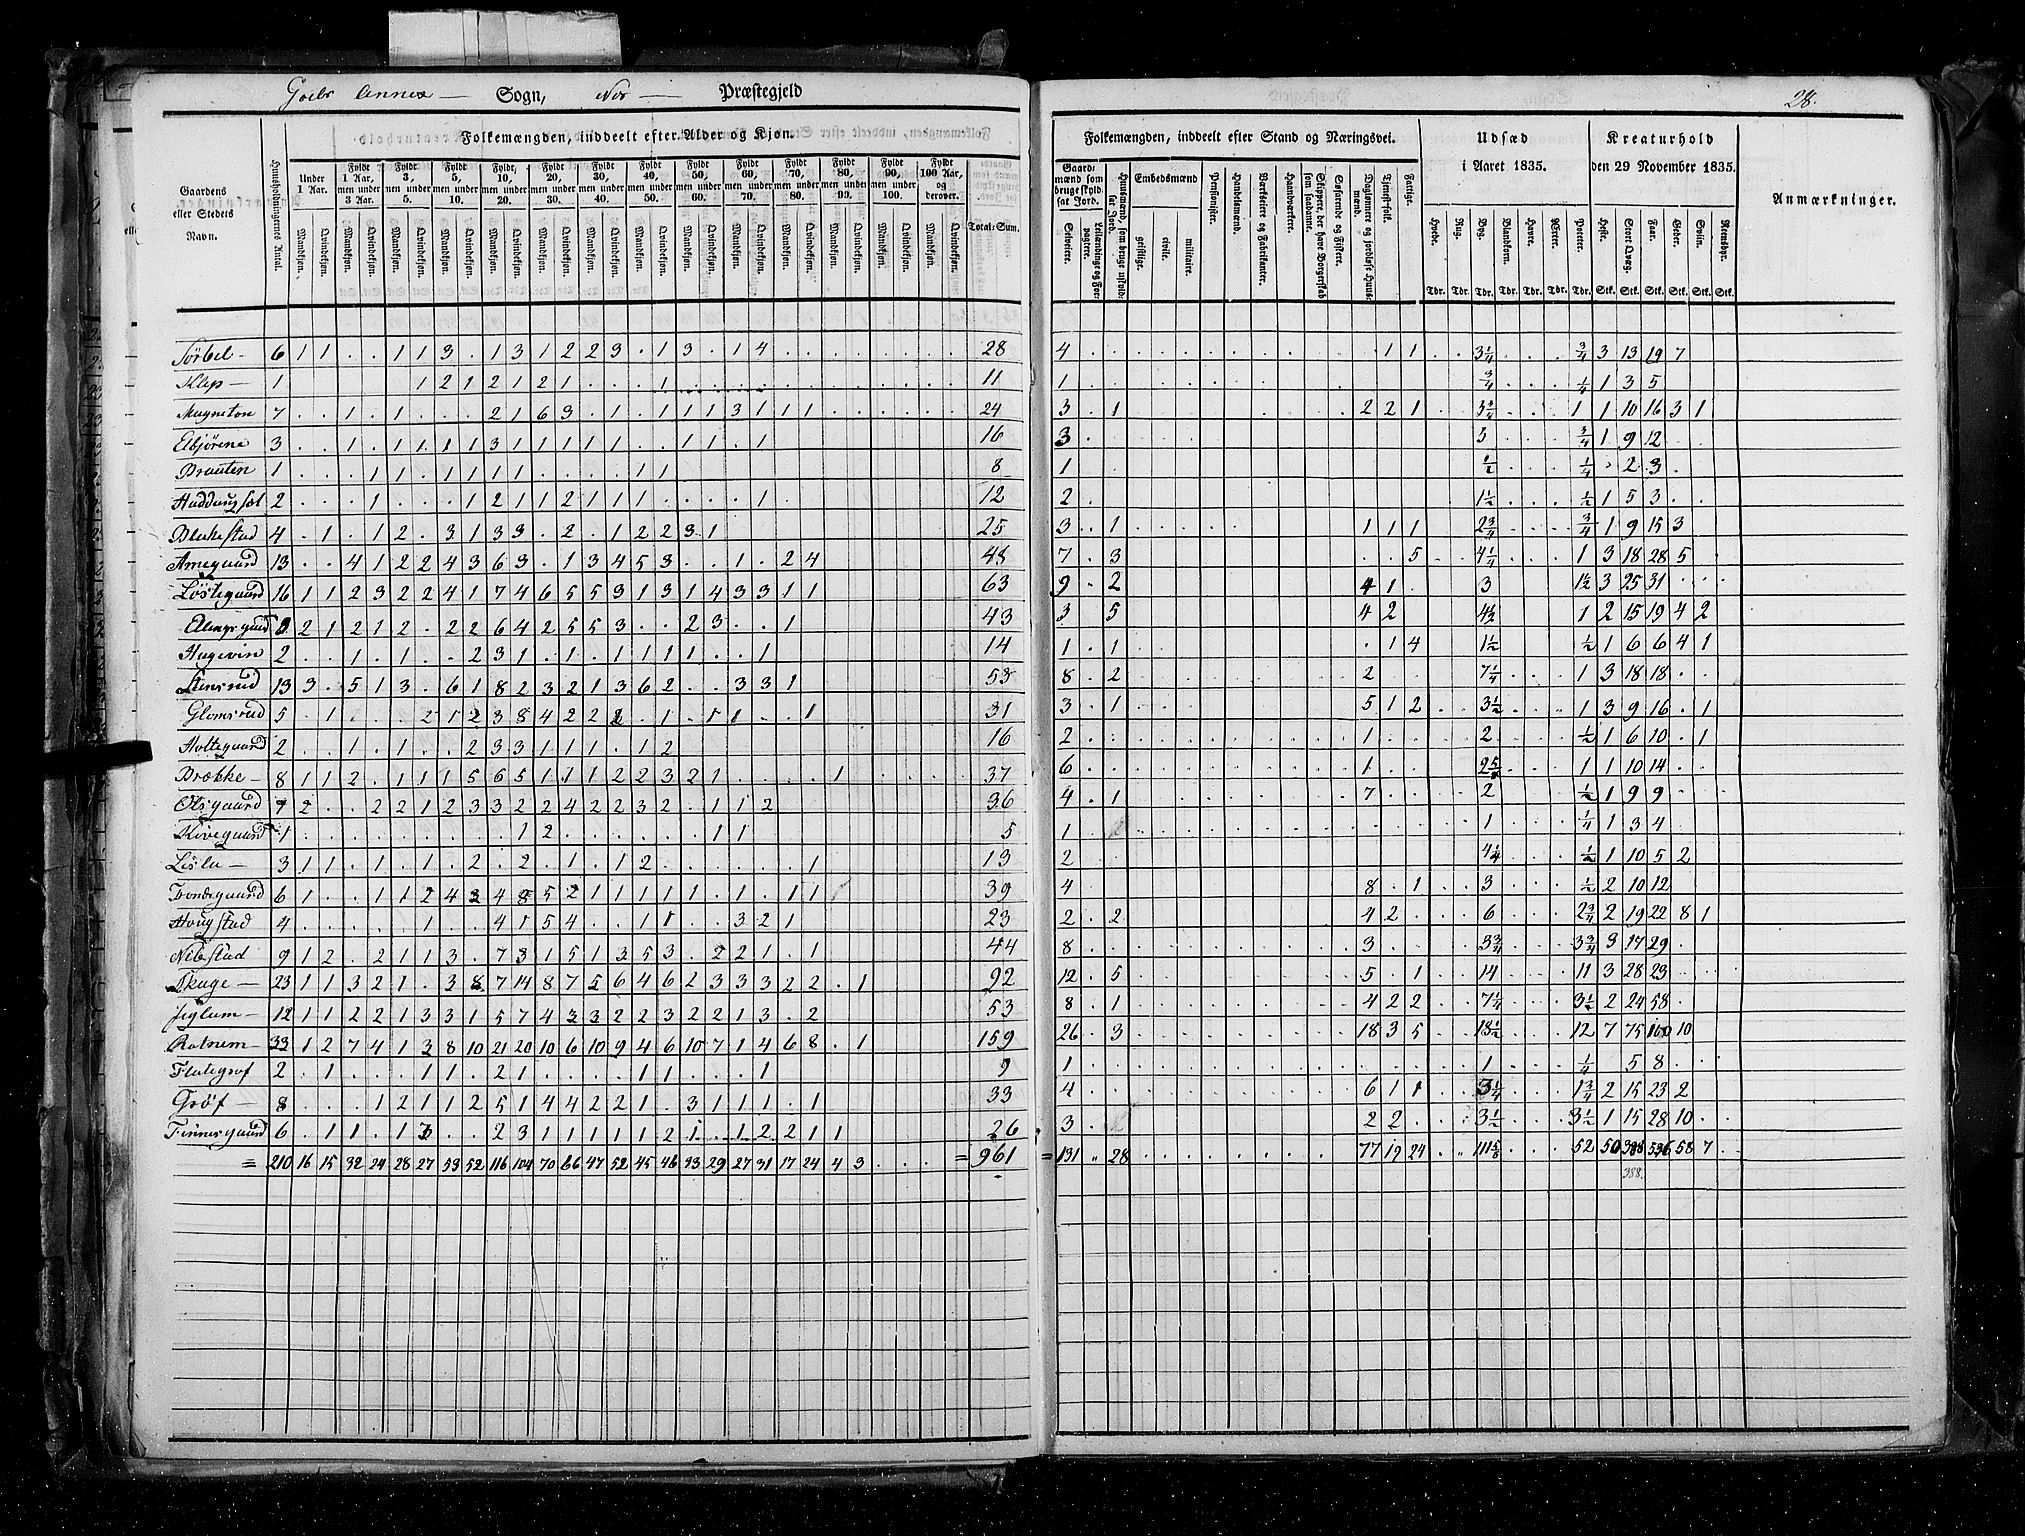 Goels Annex — Sogn, Næs — Præstegjeld
28.
Folkemængden, inddeelt efter Alder og Kjøn.
Folkemængden, inddeelt efter Stand og Næringsvei.
Udsæd i Aaret 1835.
Kreaturhold den 29 November 1835.
Anmærkninger.
Gaardens eller Stedets Navn.
Huusholdningernes Antal.
Under 1 Aar.
Fyldt 1 Aar, men under 3 Aar.
Fyldt 3, men under 5.
Fyldt 5, men under 10.
Fyldt 10, men under 20.
Fyldt 20, men under 30.
Fyldt 30, men under 40.
Fyldt 40, men under 50.
Fyldt 50, men under 60.
Fyldt 60, men under 70.
Fyldt 70, men under 80.
Fyldt 80, men under 90.
Fyldt 90, men under 100.
Fyldt 100 Aar, og derover.
Mandkjøn. Qvindekjøn.
Total-Sum.
Gaardmænd som bruge skyldsat Jord.
Selveiere.
Leilændinge og Forpagtere.
Huusmænd, som bruge uskyldsat Jord.
Embedsmænd
geistlige. civile. militaire.
Pensionister.
Handelsmænd.
Værkseiere og Fabrikanter.
Haandværkere.
Skippere, der have Borgerskab som saadanne.
Søfarende og Fiskere.
Daglønnere og jordløse Huusmænd.
Tjenestfolk.
Fattige.
Hvede. Rug. Byg. Blandkorn. Havre. Erter. Poteter.
Tdr. Tdr. Tdr. Tdr. Tdr. Tdr. Tdr.
Heste. Stort Qvæg. Faar. Geder. Sviin. Rensdyr.
Stk. Stk. Stk. Stk. Stk. Stk.
Sørbel — 6 1 1 . . 1 1 3 . 1 3 1 2 2 3 . 1 3 . 1 4 28 4 1 1 3¼ ¾ 3 13 19 7
Klep — 1 1 2 1 2 1 2 1 . . . 1 11 1 ¾ ¼ 1 3 5
Magneton 7 . . 1 . 1 . . . 2 1 6 3 . 1 . 1 1 1 3 1 1 1 24 3 . 1 2 2 1 1 1 10 16 3 1
Elbjørene 3 . . 1 . 1 1 1 1 3 1 1 1 1 1 . . 1 1 . 1 16 3 3 ¾ 1 9 12
Brauten 1 . . . 1 1 . 1 1 1 1 . . . . 1 1 8 1 ½ ¼ . 2 3
Haddungsæt 2 . . . 1 . . . 1 2 1 1 2 1 1 1 . . . . 1 12 2 1½ ½ 1 5 3
Blakestad 4 . 1 . 1 2 . 3 1 3 3 . 2 . 1 2 2 3 1 25 3 . 1 1 1 1 2¾ ¾ 1 9 15 3
Arnegaard 13 . . 4 1 2 2 4 3 6 3 . 1 3 4 5 3 . . 1 . 2 4 48 7 . 3 5 4¼ 1 3 18 28 5
Løstegaard 16 1 1 2 3 2 2 4 1 7 4 6 5 5 3 1 3 1 4 3 3 1 1 63 9 . 2 4 1 3 1½ 3 25 31
8 2 1 2 1 2 . 2 2 6 4 2 5 5 3 . . 2 3 . . 1 43 3 5 4 2 4½ 1 2 15 19 4 2
Hagevin 2 . . 1 . 1 . . 2 3 1 . 1 . 1 1 1 1 . . 1 14 1 . 1 . 1 4 1½ ½ 1 6 6 4 1
Stensrud 13 3 . 5 1 3 . 6 1 8 2 3 2 1 3 6 2 . . 3 3 1 53 8 . 2 2 7¼ 1 3 18 18
Glomsrud 5 . 1 . . . 2 1 2 3 8 4 2 2 2 . 1 . 1 1 . . 1 31 3 . 1 5 1 2 3½ 1 3 9 16 . 1
Holtegaard 2 . . 1 . 1 . . 2 3 3 1 1 1 . 1 2 16 2 1 2 ½ 1 6 10 . 1
Brække — 8 1 1 2 . 1 1 1 5 6 5 1 1 1 2 2 3 2 1 . . . . 1 37 6 1 1 1 10 14
Olsgaard 7 2 . . 2 2 1 2 3 3 2 2 4 2 2 3 2 . 1 1 2 36 4 . 1 7 2 ½ 1 9 9
1 1 2 1 1 5 1 1 ¼ 1 3 4
Lisla — 3 1 1 . 1 . 1 . 2 . 2 . 1 . 1 2 1 13 2 ½ 1 10 5 2
Trøndsgaard 6 1 . . 1 1 2 4 3 4 8 5 2 1 1 1 1 1 . 1 . 1 1 39 4 8 . 1 3 ½ 2 10 12
Hougstad 4 . . . . . 1 . . 4 1 5 4 . . 1 1 . . 3 2 1 23 2 . 2 4 2 6 2¾ 2 19 22 8 1
Nibstad 9 1 2 . 2 1 1 3 . 7 3 1 5 1 3 5 3 . 2 2 1 . 1 44 8 3 3¾ 3¾ 3 17 29
Skage — 23 1 1 3 2 1 . 3 8 7 14 8 7 5 6 4 6 2 3 3 3 2 2 . 1 92 12 . 5 5 . 1 14 11 3 28 23
Juglum — 12 1 1 2 2 1 3 3 1 5 7 4 3 3 2 2 3 2 2 1 3 . 2 53 8 . 1 4 2 2 7¼ 3½ 2 24 58
Rotnem — 33 1 2 7 4 1 3 8 10 21 20 10 6 10 9 4 6 10 7 1 4 6 8 . 1 159 26 . 3 18 3 5 18½ 12 7 75 100 10
Flategrøf 2 . 1 . . . 1 1 . 2 1 . . . . 1 1 . . . 1 9 1 1 ¼ 5 8
Grøf — 8 . . . 1 2 1 1 2 5 1 4 4 2 2 1 . 3 1 1 1 . 1 33 4 6 1 1 3¼ 1¾ 2 15 23 2
Finnesgaard 6 . 1 1 . 1 3 . . 2 3 1 1 1 1 1 2 1 . 1 2 2 1 1 26 3 2 2 3½ 3½ 1 15 28 10
= 210 16 15 32 24 28 27 53 52 116 104 70 66 47 52 45 46 33 29 27 31 17 24 4 3 . . . = 961 = 131 „ 28 77 19 24 . „ 111⅝ 52 50 388 536 58 7
388.